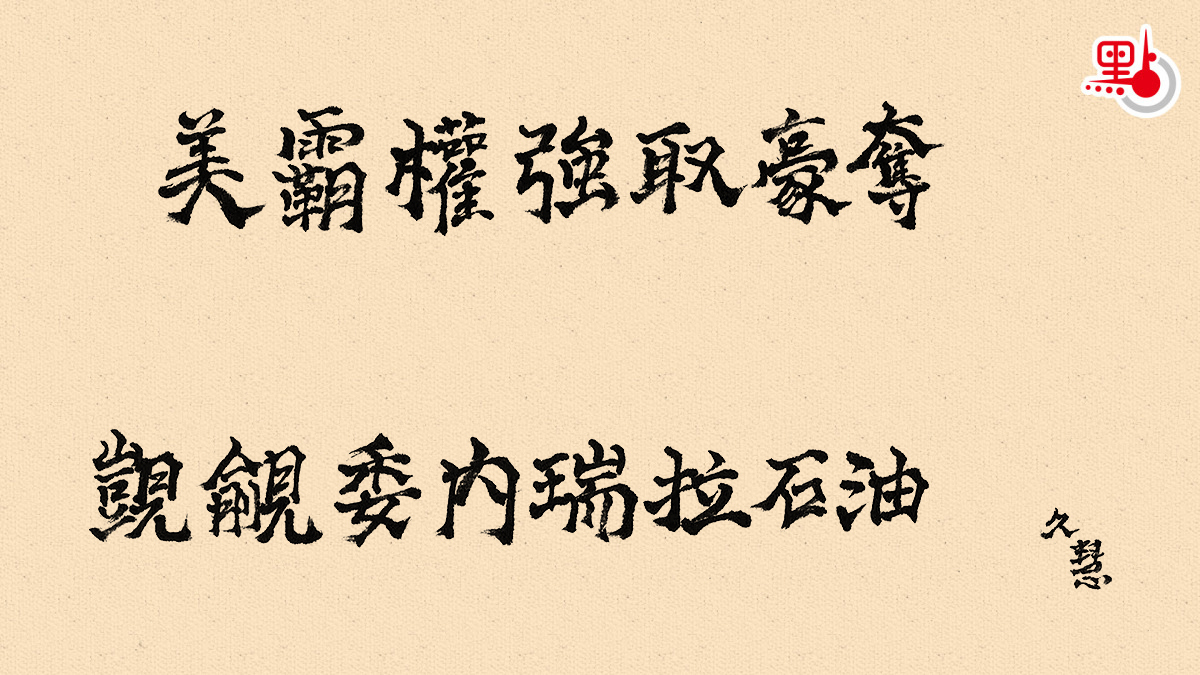 點
美霸權強取豪奪
覬覦委內瑞拉石油
久慧